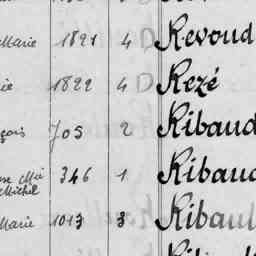 Marie 1821 4 D Revoud
ie 1822 4 D Rezé
çois 705 2 Ribaud
Michel 346 1 Ribaud
Marie 1013 3 Ribaul